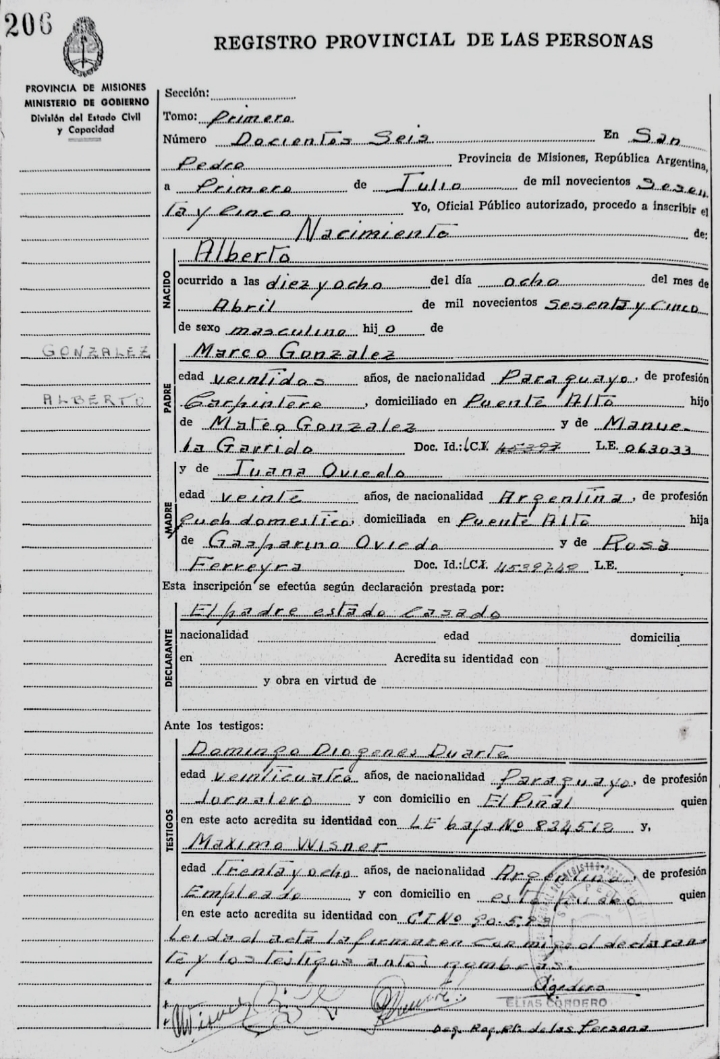 206
REGISTRO PROVINCIAL DE LAS PERSONAS
PROVINCIA DE MISIONES
MINISTERIO DE GOBIERNO
División del Estado Civil
y Capacidad
GONZALEZ
ALBERTO
Sección:
Tomo: Primero
Número Docientos Seis En San
Pedro Provincia de Misiones, República Argentina,
a Primero de Julio de mil novecientos Sesen
ta y Cinco Yo, Oficial Público autorizado, procedo a inscribir el
Nacimiento de:
NACIDO
Alberto
ocurrido a las diez y ocho del día ocho del mes de
Abril de mil novecientos Sesenta y Cinco
de sexo masculino hijo de
PADRE
Marco Gonzalez
edad veintidos años, de nacionalidad Paraguayo, de profesión
Carpintero, domiciliado en Puente Alto hijo
de Mateo Gonzalez y de Manue-
la Garrido Doc. Id.: C.I. 45397 L.E. 063033
y de Juana Oviedo
MADRE
edad veinte años, de nacionalidad Argentina, de profesión
domestico, domiciliada en Puente Alto hija
de Gasparino Oviedo y de Rosa
Ferreyra Doc. Id.: C.I. L.E.
Esta inscripción se efectúa según declaración prestada por:
DECLARANTE
El padre estado Casado
nacionalidad edad domicilia
en Acredita su identidad con
y obra en virtud de
Ante los testigos:
TESTIGOS
Domingo Diogenes Duarte
edad veinticuatro años, de nacionalidad Paraguayo, de profesión
Jornalero y con domicilio en El Piñal quien
en este acto acredita su identidad con LE baja Nº 834518 y,
Maximo Wisner
edad trenta y ocho años, de nacionalidad Argentino, de profesión
Empleado y con domicilio en este quien
en este acto acredita su identidad con CI Nº 90.583
Leida el acta la firmaron con migo el declaran
te y los testigos antes nombras.
ELIAS CORDERO
de las Persona